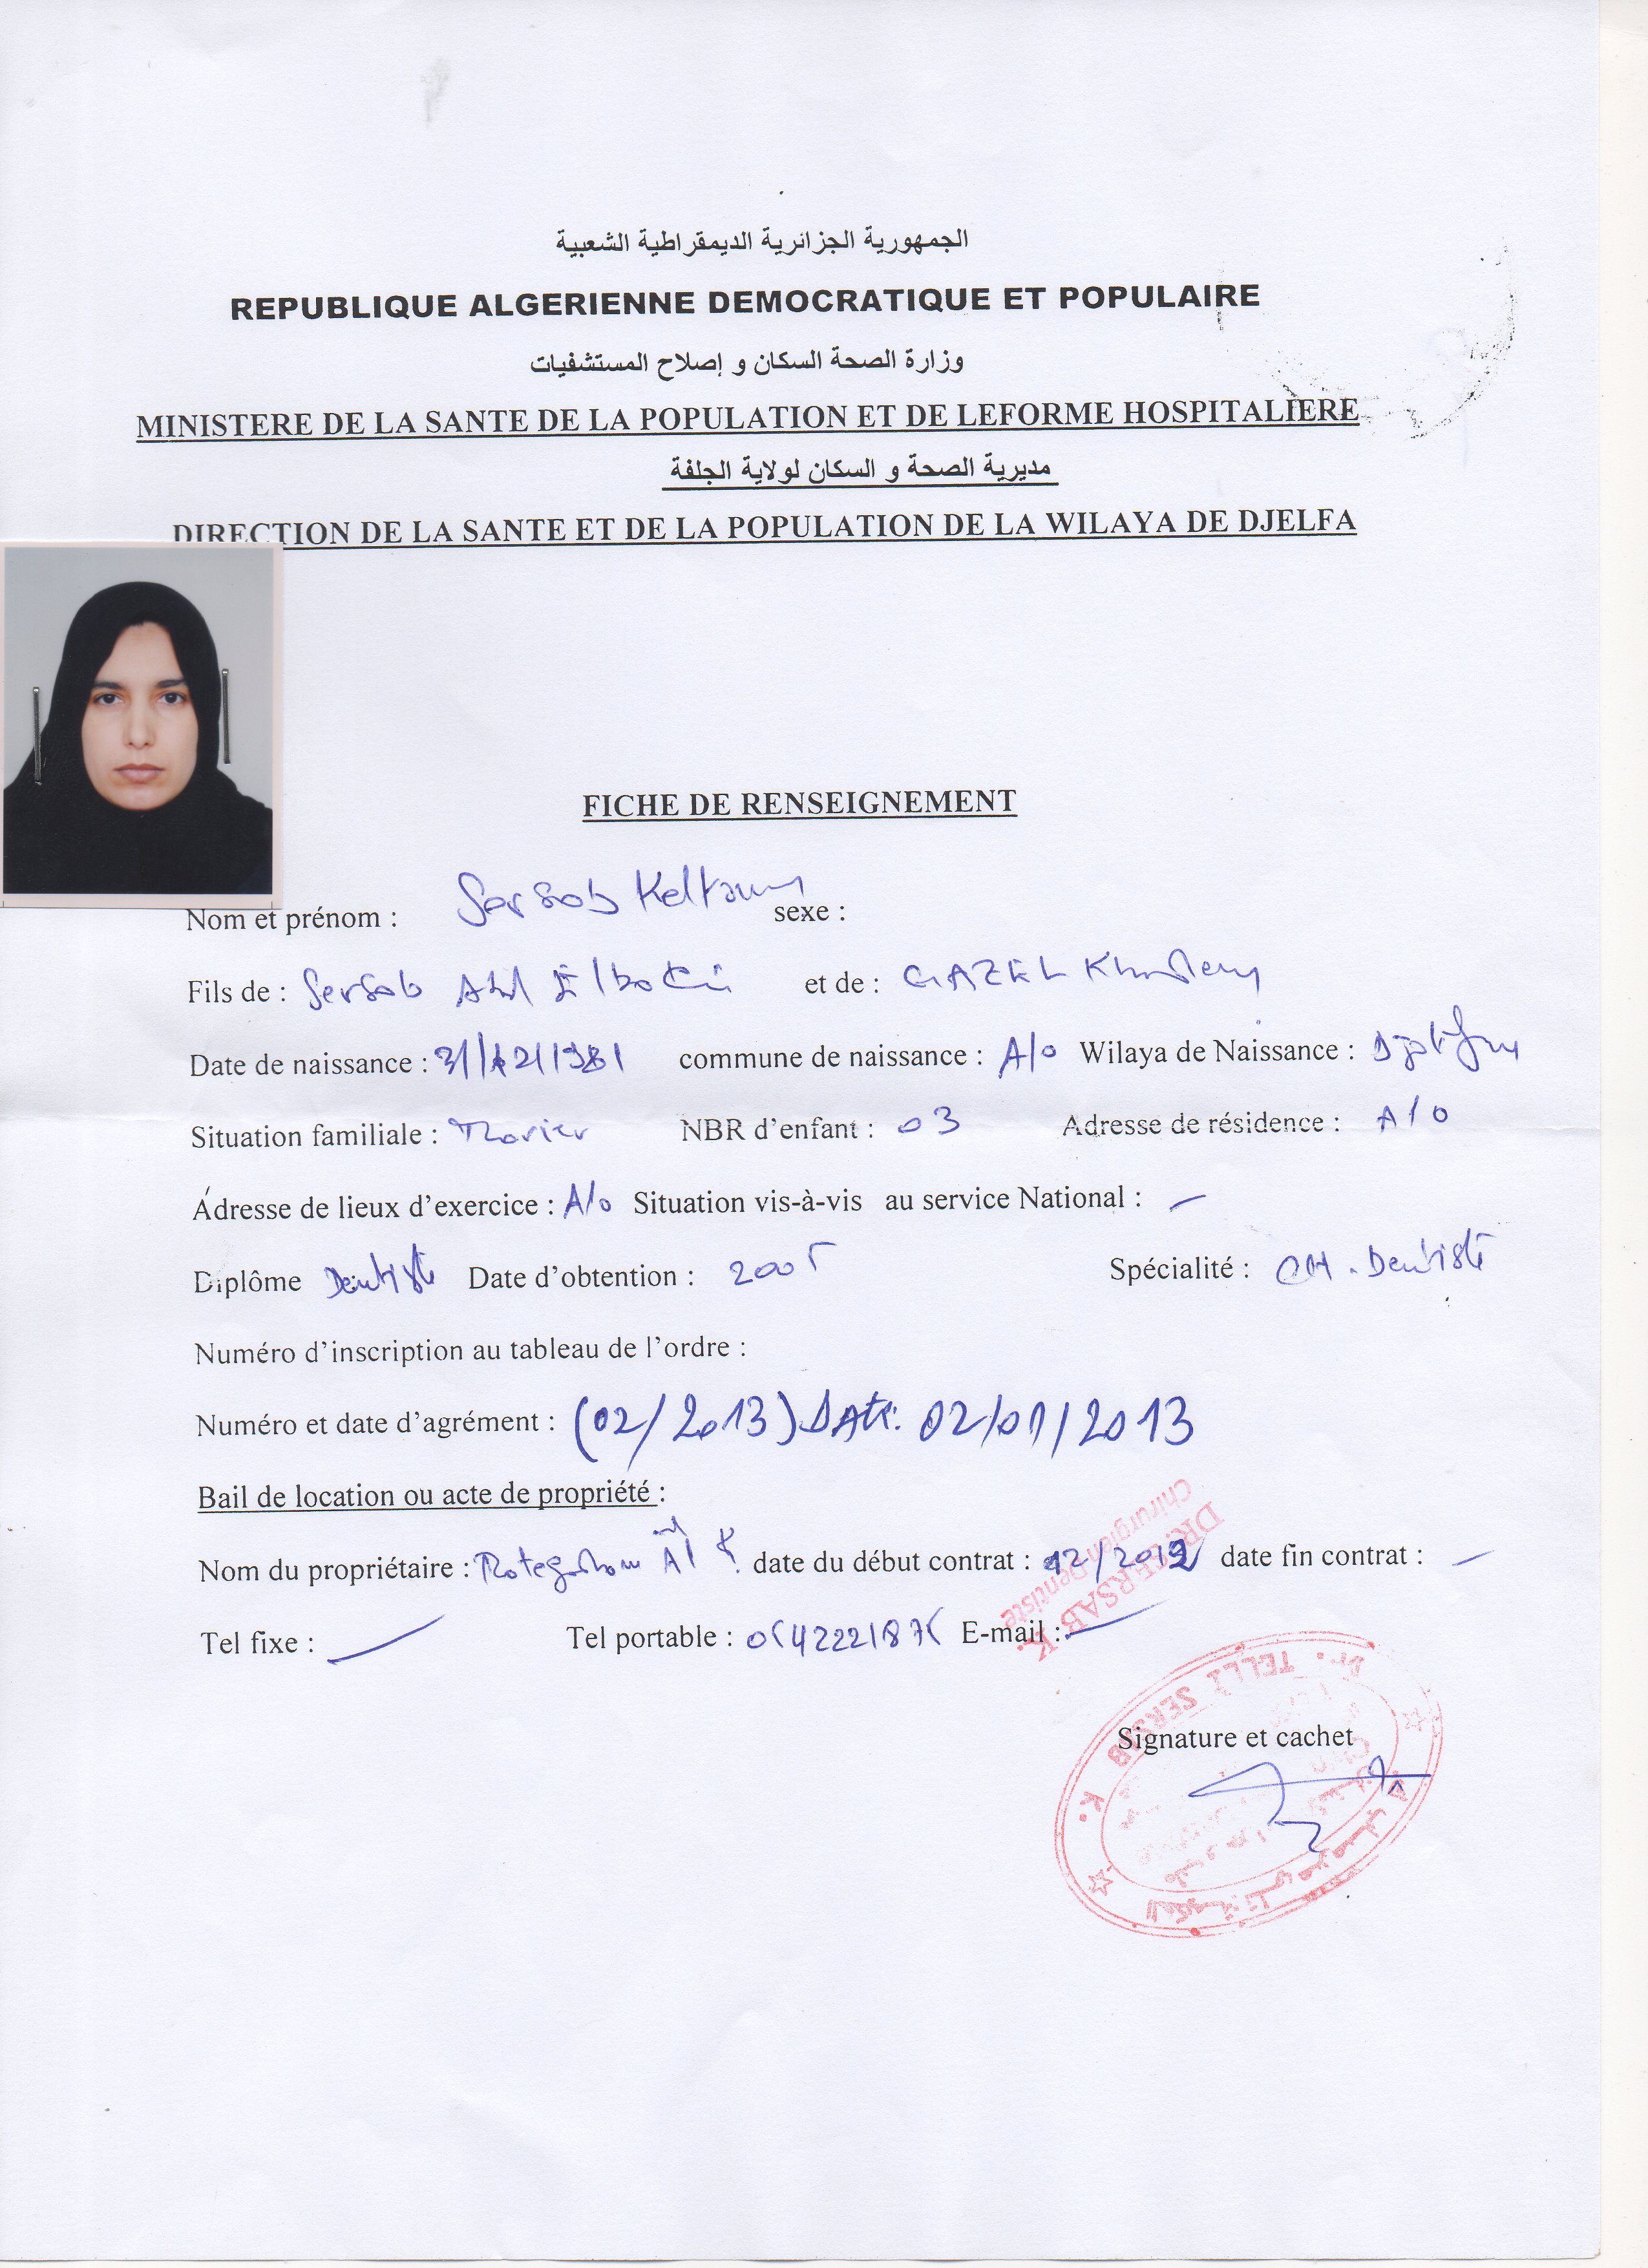 الجمهورية الجزائرية الديمقراطية الشعبية
REPUBLIQUE ALGERIENNE DEMOCRATIQUE ET POPULAIRE
وزارة الصحة السكان و إصلاح المستشفيات
MINISTERE DE LA SANTE DE LA POPULATION ET DE LEFORME HOSPITALIERE
مديرية الصحة و السكان لولاية الجلفة
DIRECTION DE LA SANTE ET DE LA POPULATION DE LA WILAYA DE DJELFA
FICHE DE RENSEIGNEMENT
Nom et prénom : Sersab Keltoum sexe :
Fils de : Sersab Abd et de : GAZEL
Date de naissance : 31/12/1981 commune de naissance : A/O Wilaya de Naissance :
Situation familiale : Marier NBR d'enfant : 03 Adresse de résidence : A/O
Adresse de lieux d'exercice : A/O Situation vis-à-vis au service National : —
Diplôme Dentiste Date d'obtention : 2005 Spécialité : CH. Dentiste
Numéro d'inscription au tableau de l'ordre :
Numéro et date d'agrément : (02/2013) DATE: 02/01/2013
Bail de location ou acte de propriété :
Nom du propriétaire : date du début contrat : 12/2012 date fin contrat : —
Tel fixe : — Tel portable : 0542221875 E-mail : —
DR. SERSAB K.
Chirurgien Dentiste
Signature et cachet
Dr. TELLI SERSAB K.